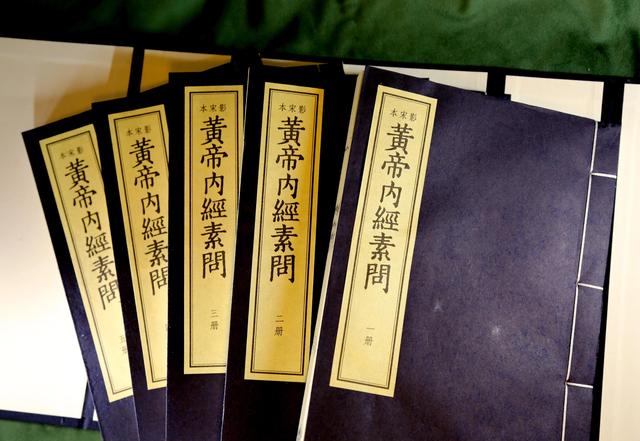 影宋本
黃帝内經素問
一册
影宋本
黃帝内經素問
二册
影宋本
黃帝内經素問
三册
影宋本
黃帝内經素問
影宋本
黃帝内經素問